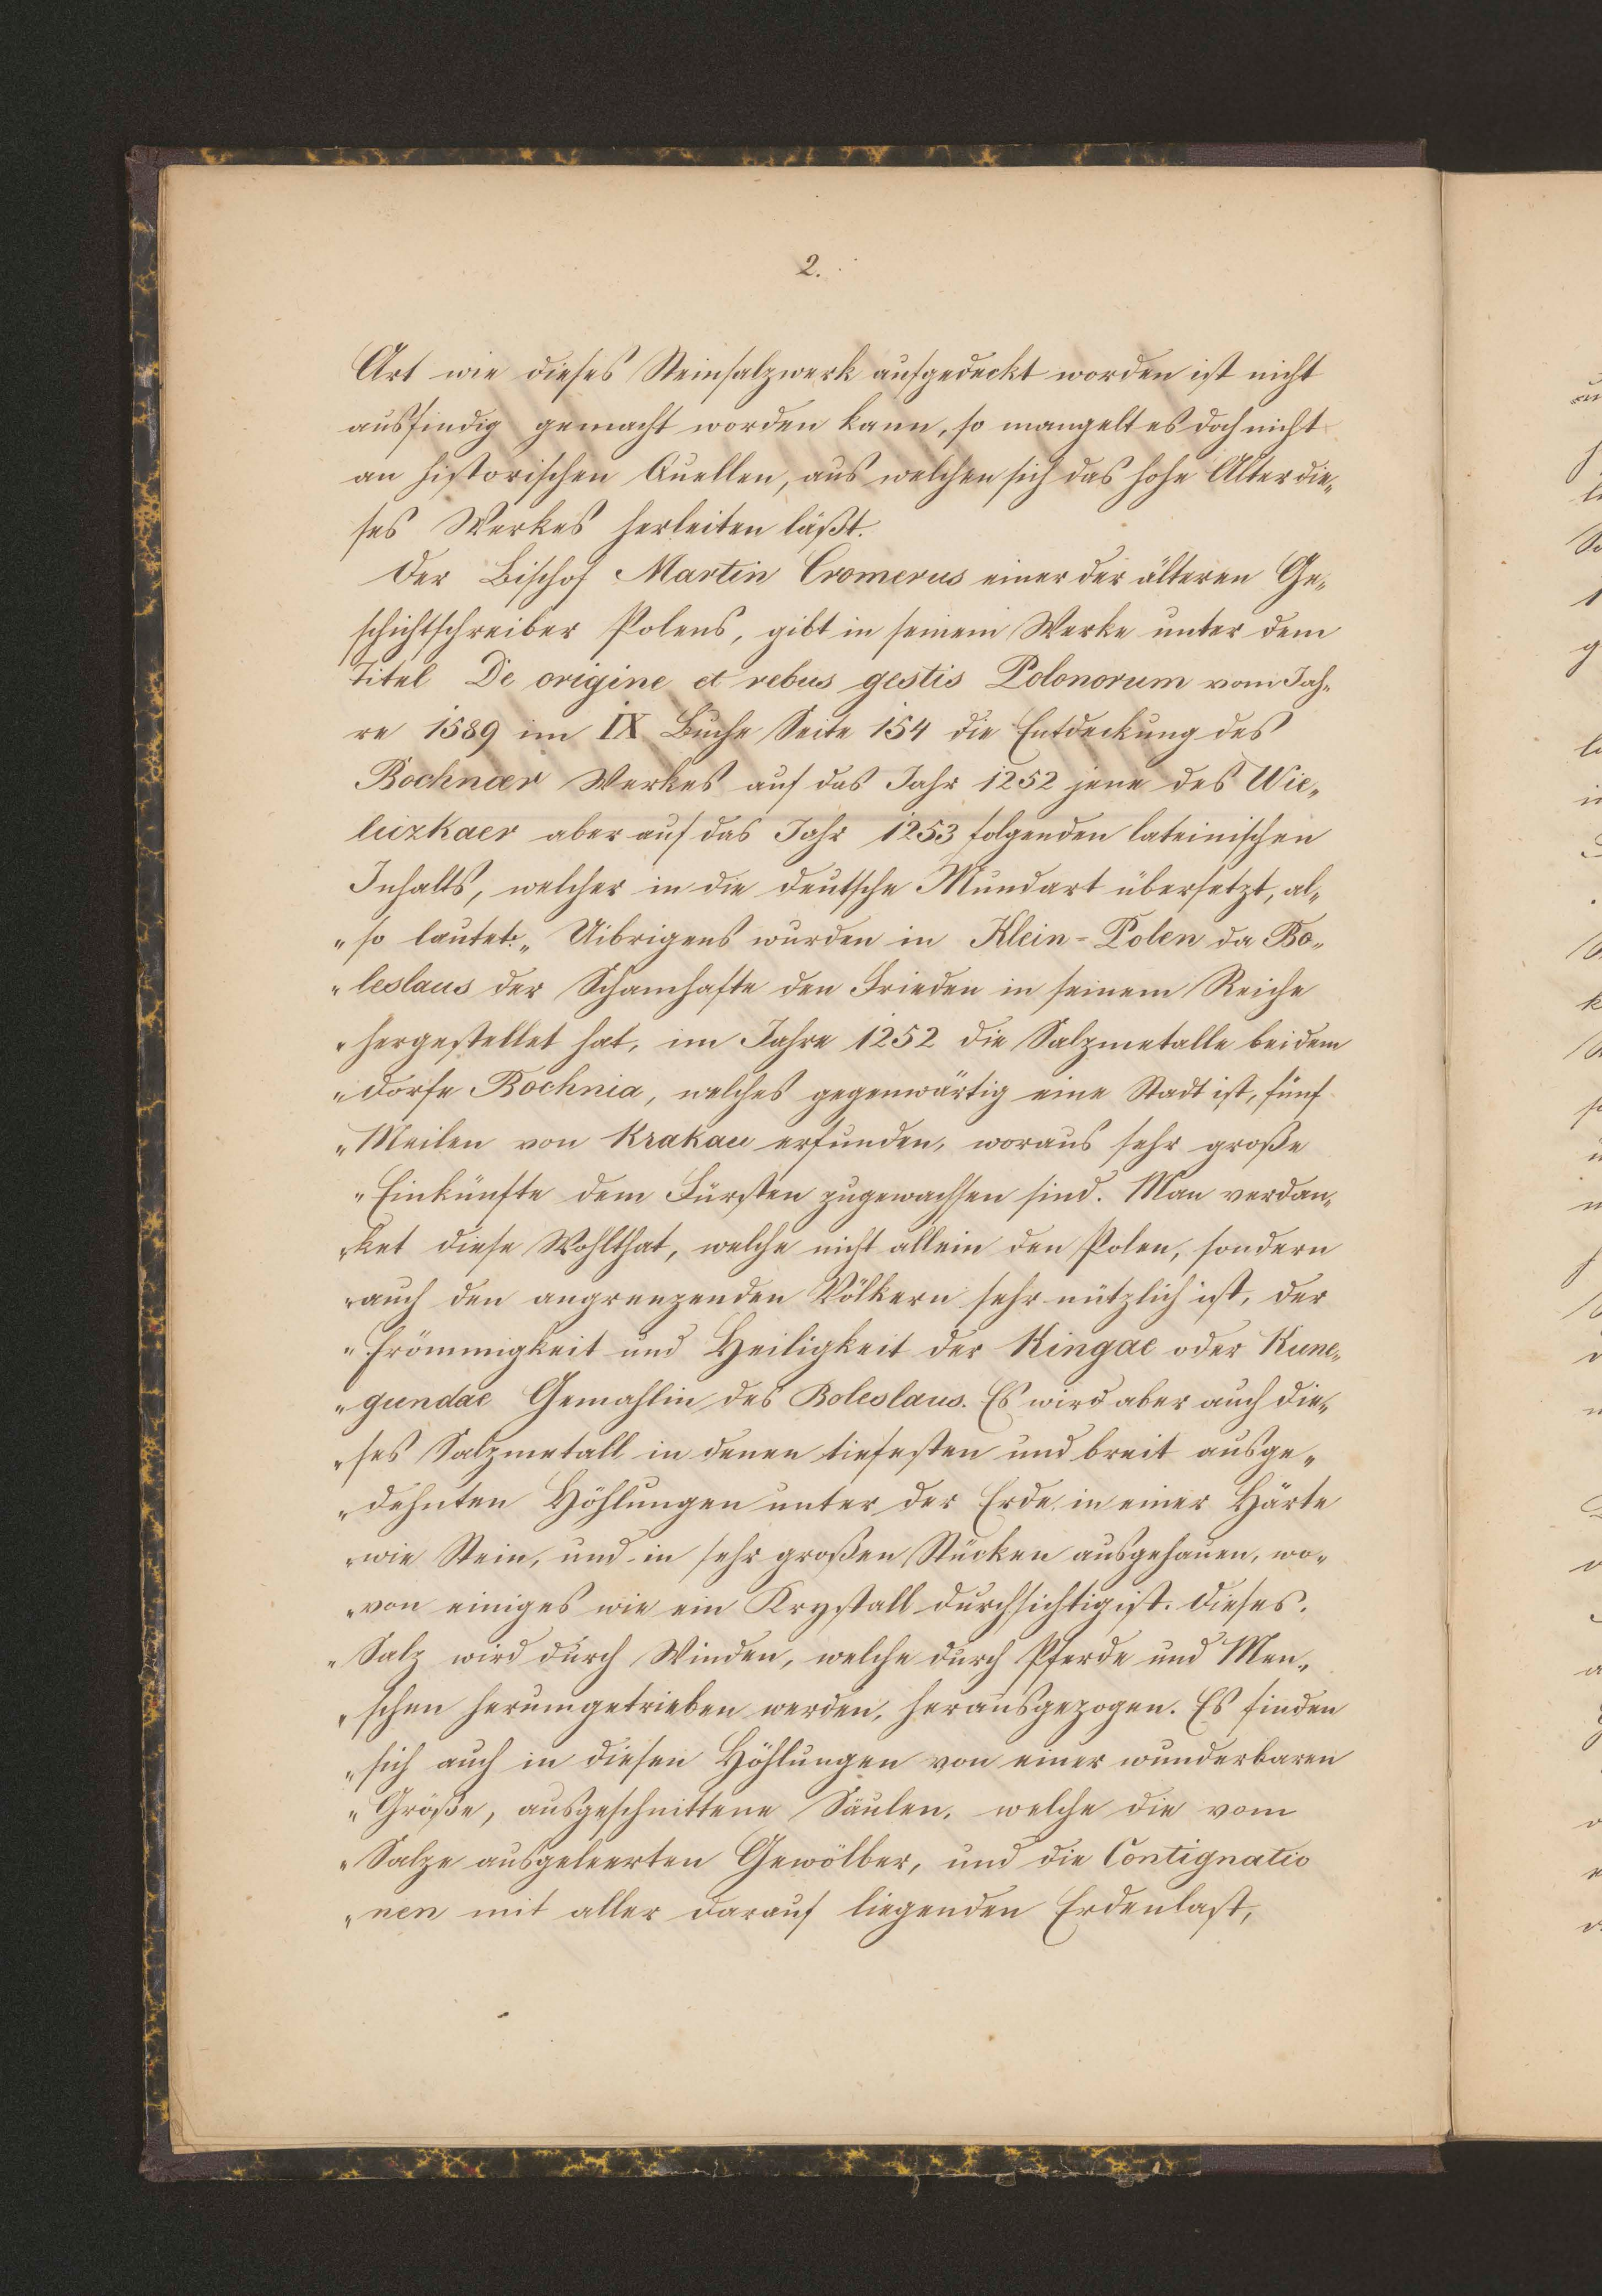 2.
Art wie dieses Steinsalzwerk aufgedeckt worden ist nicht
ausfindig gemacht worden kann, so mangelt es doch nicht
an historischen Quellen, aus welchen sich das hohe Alter die„
ses Werkes herleiten läßt.
Der Bischof Martin Cromerus einer der älteren Ge„
schichtschreiber Polens, gibt in seinem Werke unter dem
Titel De origine et rebus gestis Polonorum vom Jah„
re 1589 im IX Buche Seite 154 die Entdeckung des
Bochnaer Werkes auf das Jahr 1252 jene des Wie„
liczkaer aber auf das Jahr 1253 folgenden lateinischen
Inhalts, welcher in die deutsche Mundart übersetzt, al„
„so lautet: „Uibrigens wurden in Klein-Polen da Bo„
„leslaus der Schamhafte den Frieden in seinem Reiche
„hergestellet hat, im Jahre 1252 die Salzmetalle bei dem
„Dorfe Bochnia, welches gegenwärtig eine Stadt ist, fünf
„Meilen von Krakau erfunden, woraus sehr große
„Einkünfte dem Fürsten zugewachsen sind. Man verdan„
„ket diese Wohlthat, welche nicht allein den Polen, sondern
„auch den angrenzenden Völkern sehr nützlich ist, der
„Frömmigkeit und Heiligkeit der Kingae oder Kune„
„gundae Gemahlin des Boleslaus. Es wird aber auch die„
„ses Salzmetall in denen tiefesten und breit ausge„
„dehnten Höhlungen unter der Erde in einer Härte
„wie Stein, und in sehr großen Stücken ausgehauen, wo„
„von einiges wie ein Krystall durchsichtig ist. Dieses
„Salz wird durch Winden, welche durch Pferde und Men„
„schen herumgetrieben werden, herausgezogen. Es finden
„sich auch in diesen Höhlungen von einer wunderbaren
„Größe, ausgeschnittene Säulen, welche die vom
„Salze ausgeleerten Gewölber, und die Contignatio
„nen mit aller darauf liegenden Erdenlast,